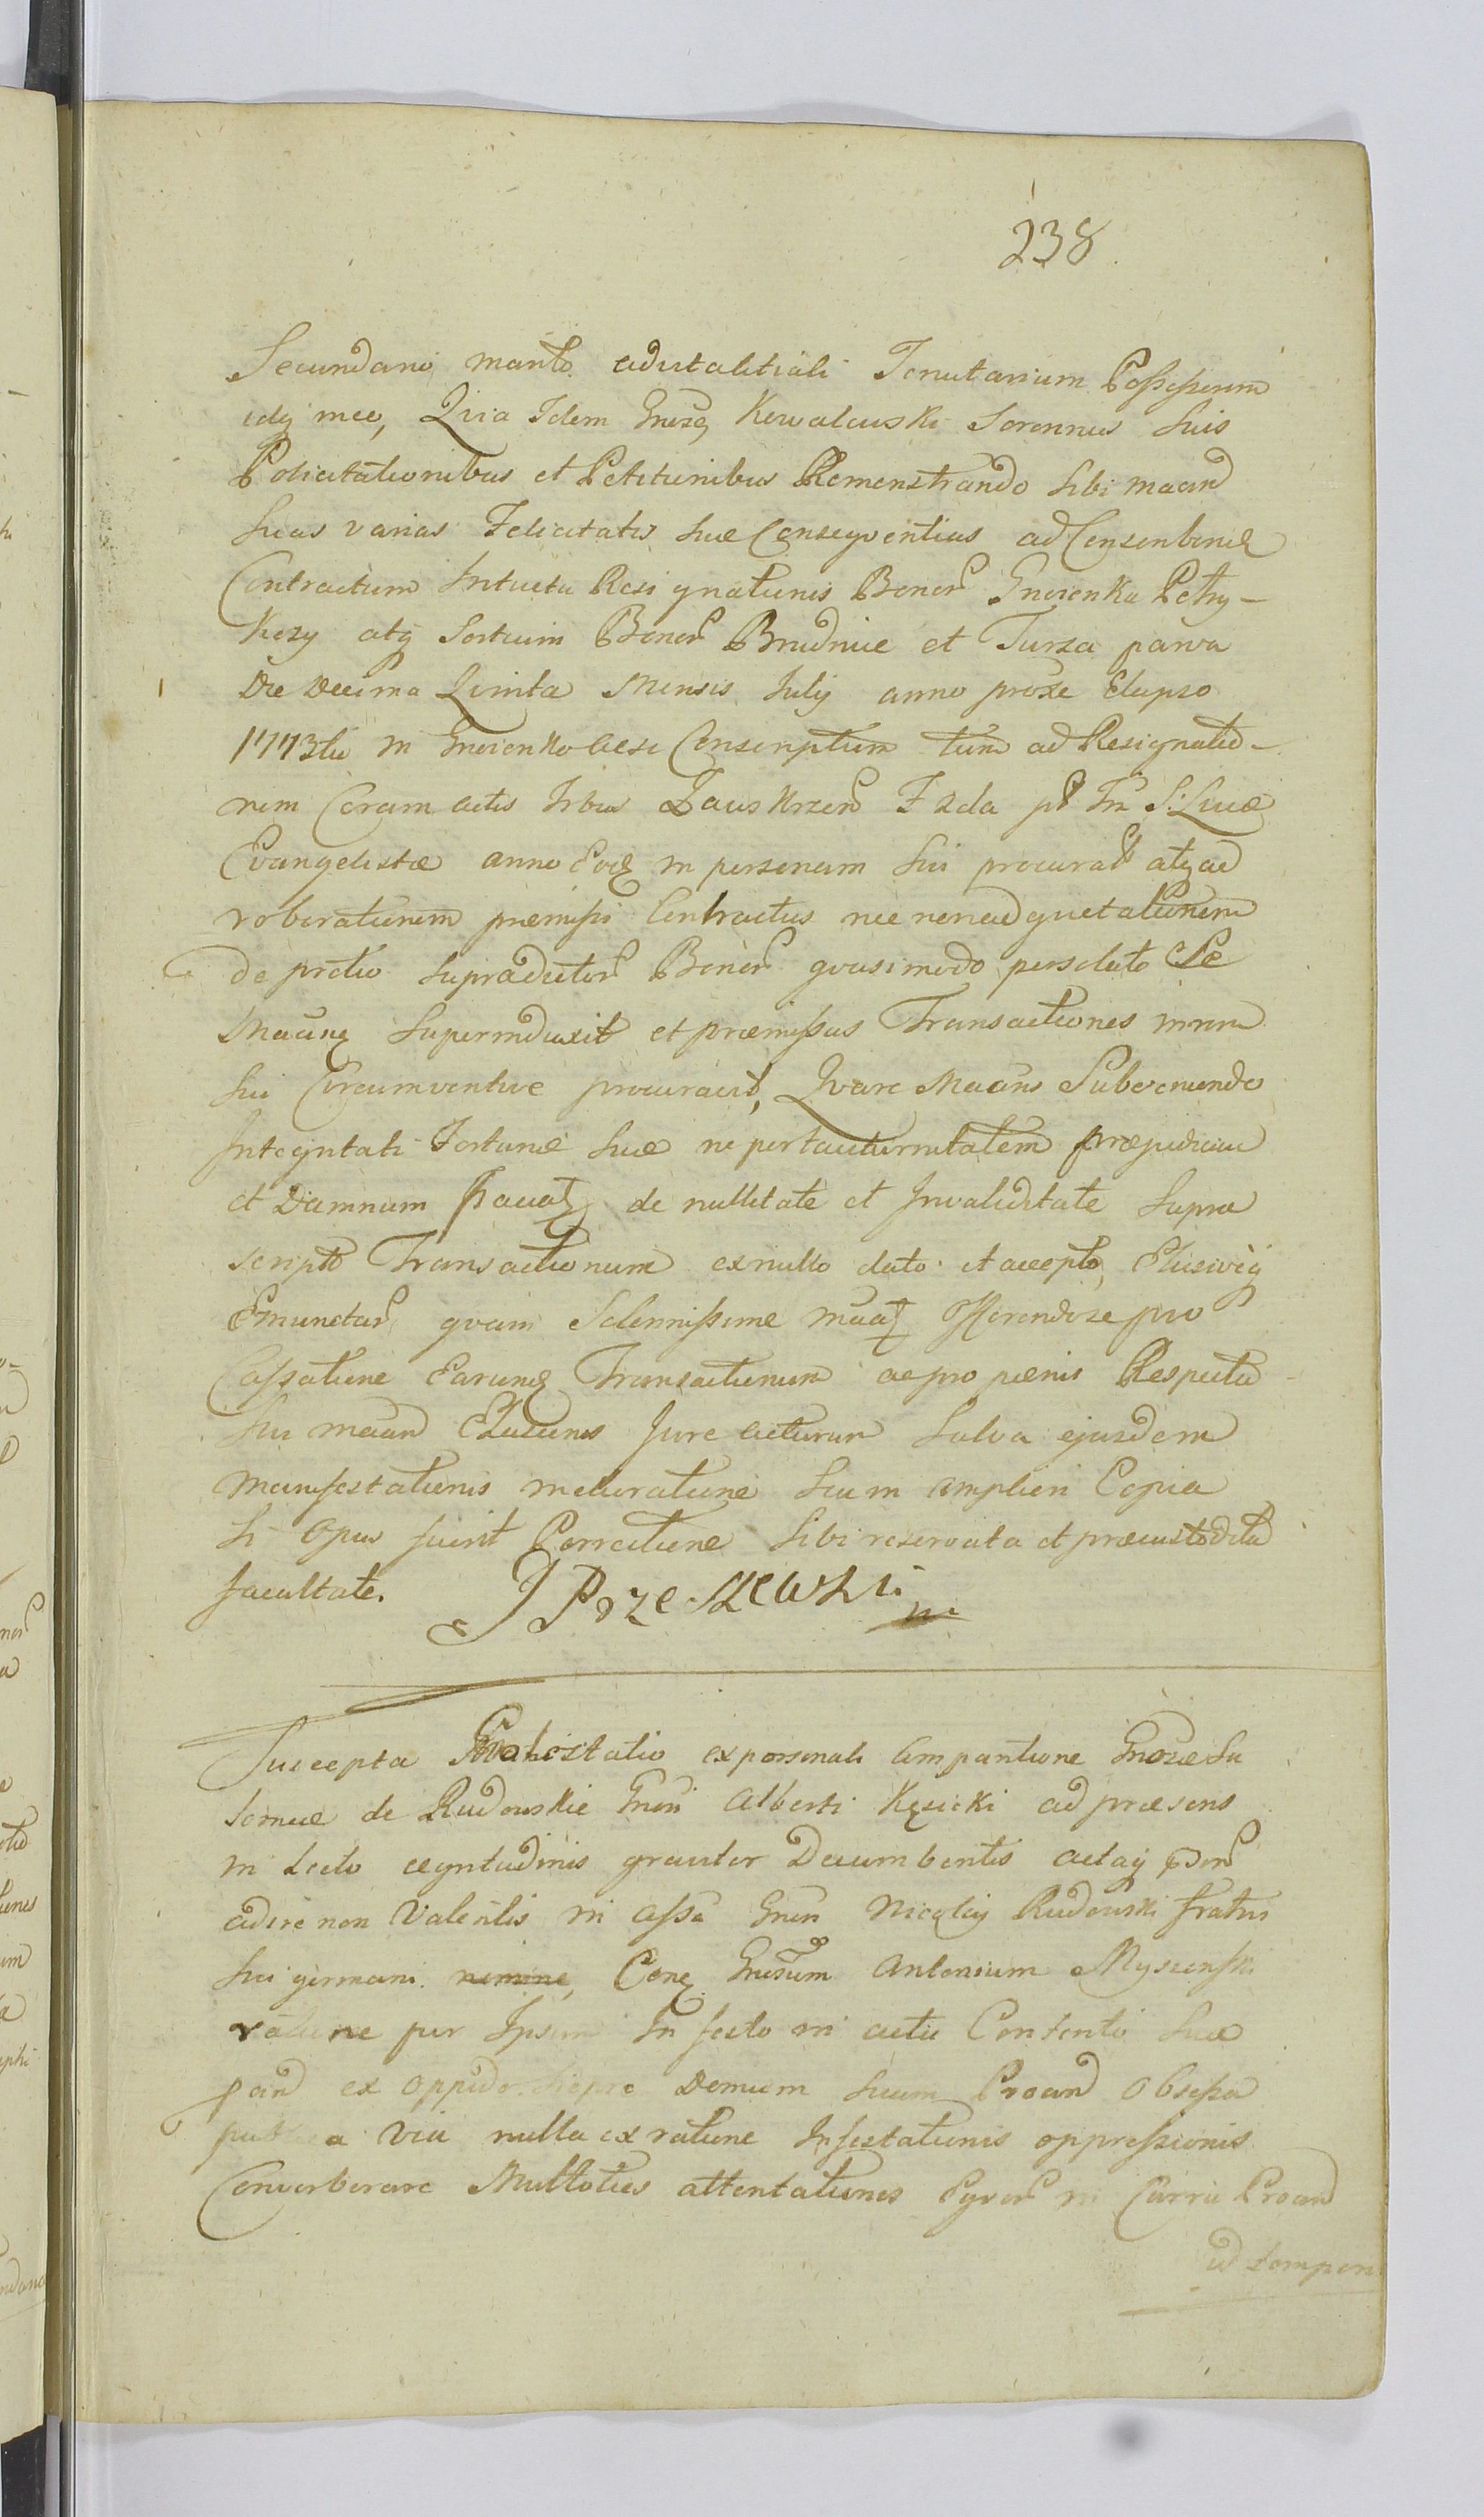 238.
Secundario marito advitalitiali Tenutarium Possessorem
idq meo, Quia Idem Gnrosq Kowalewski Serennus Suis
Policitationibus et Petitionibus Remonstrando Sibi maand
Suas varias Felicitatis Suæ Conseqventias ad Conscribend
Contractum Intuitu Resignationis Bonor Gnoienka Petry-
Kozy atq Sortium Bonor Brudnice et Turza parva
Die Decima Quinta Mensis Julij anno proxe Elapso
1773tio in Gnoienko acse Conscriptum tum ad Resignatio-
nem Coram actis Trbus Zawskrzen F 2da pt Fm S: Lucæ
Evangelistæ anno Eod in personam Sui procurat atq ad
roborationem præmissi Contractus nec non ad quietationem
de prætio Supradictor Bonor qvasimodo persoluto Se
Maanq Superinduxit et præmissas Transactiones in rem
Sui Circumventive procuravit, Qvare Maans Subveniendo
Integritati Fortunæ Suæ ne per taciturnitatem præjudicium
et Damnum de nullitate et Invaliditate Supra
script Transactionum ex nullo dato et accepto, Elusivèq
Emunctar qvam Solennissime Offerendo se pro
Cassatione Earund Transactionum ac pro pænis Respectu
Sui maand Elusionis Jure acturum Salva ejusdem
Manifestationis melioratione Seu in ampliori Copia
Si Opus fuerit Porrectione Sibi reservata et præcustodita
facultate. J Przeszewski m
Suscepta Protestatio ex personali Comparitione Gnosæ Sa
lomeæ de Rudowskie Gnosi Alberti Kęsicki ad præsens
in Lecto ægritudinis graviter Decumbentis actaq
adire non Valentis in assa Gnosi Nicolaij Rudowski fratris
Sui germani Cong Gnosum Antonium Myszenski
ratione per Ipsum In festo in actu Contento Suæ
ex oppido Domum Suam Proand Obsessa
publica via nulla ex ratione Infestationis oppressionis
Converberare Multoties attentationes Eqvor in Curru Proand
id tempori